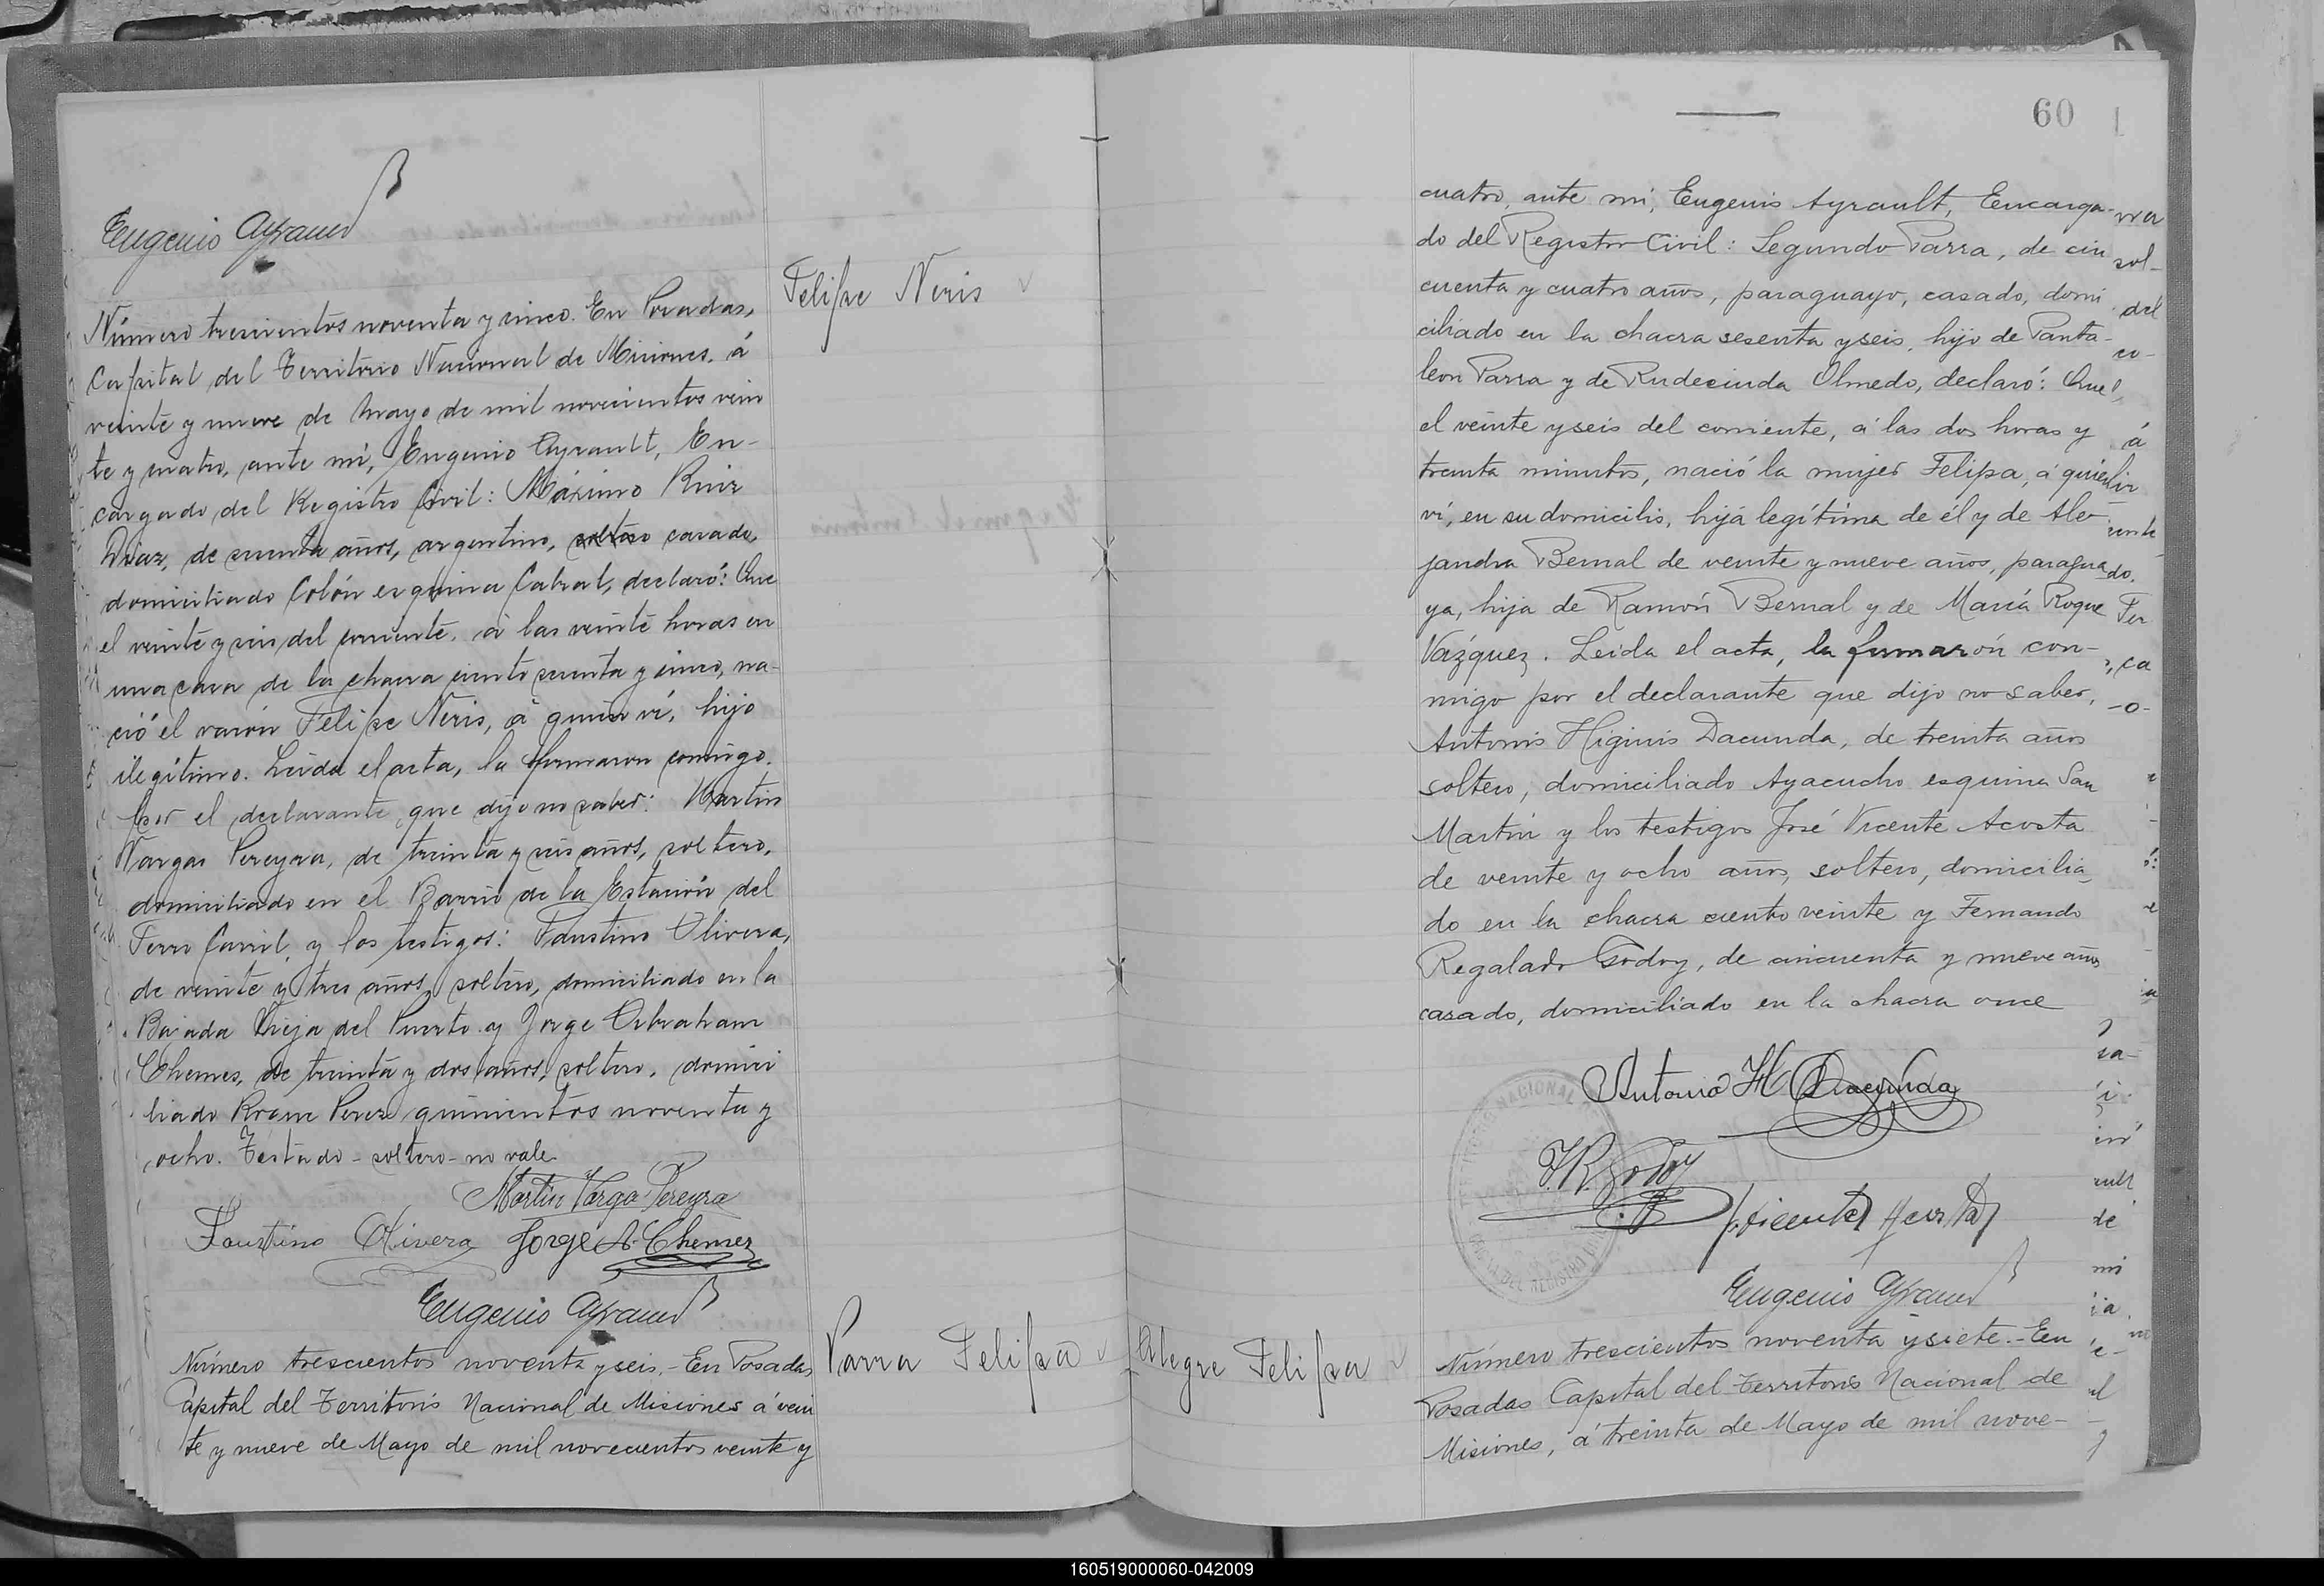 Eugenio Ayrault
Felipe Neris
Número trescientos noventa y cinco. En Posadas,
Capital del Territorio Nacional de Misiones, á
veinte y nueve de Mayo de mil novecientos vein
te y cuatro, ante mí, Eugenio Ayrault, En-
cargado del Registro Civil: Máximo Ruiz
Diaz, de sesenta años, argentino, soltero casado,
domiciliado Colón esquina Cabral, declaró: Que
el veinte y seis del corriente, á las veinte horas en
una casa de la chacra ciento sesenta y cinco, na-
ció el varón Felipe Neris, á quien ví, hijo
ilegítimo. Leida el acta, la firmaron conmigo.
por el declarante que dijo no saber: Martin
Vargas Pereyra, de treinta y seis años, soltero,
domiciliado en el Barrio de la Estación del
Ferro Carril, y los testigos: Faustino Olivera,
de veinte y tres años, soltero, domiciliado en la
Bajada Vieja del Puerto y Jorge Abraham
Chemes, de treinta y dos años, soltero, domici
liado Roque Perez quinientos noventa y
ocho. Testado - soltero - no vale
Martin Varga Pereyra
Faustino Olivera Jorge A. Chemes
Eugenio Ayrault
Parra Felipa
Número trescientos noventa y seis.- En Posadas
Capital del Territorio Nacional de Misiones á vein
te y nueve de Mayo de mil novecientos veinte y
60
cuatro, ante mi, Eugenio Ayrault, Encarga-
do del Registro Civil: Segundo Parra, de cin
cuenta y cuatro años, paraguayo, casado, domi
ciliado en la chacra sesenta y seis, hijo de Panta-
leon Parra y de Rudecinda Olmedo, declaró: Que
el veinte y seis del corriente, á las dos horas y
treinta minutos, nació la mujer Felipa, á quien
ví, en su domicilio, hija legítima de él y de Ale-
jandra Bernal de veinte y nueve años, paragua
ya, hija de Ramón Bernal y de María Roque
Vázquez. Leida el acta, la firmarón con-
migo por el declarante que dijo no saber,
Antonio Higinio Dacunda, de treinta años
soltero, domiciliado Ayacucho esquina San
Martín y los testigos José Vicente Acosta
de veinte y ocho años, soltero, domicilia
do en la chacra ciento veinte y Fernando
Regalado Godoy, de cincuenta y nueve años
casado, domiciliado en la chacra once
Antonio H Dacunda
F.R. Godoy
J. Vicente Acosta
Eugenio Ayrault
Alegre Felipa
Número trescientos noventa y siete.- En
Posadas Capital del Territorio Nacional de
Misiones, á treinta de Mayo de mil nove-
160519000060-042009